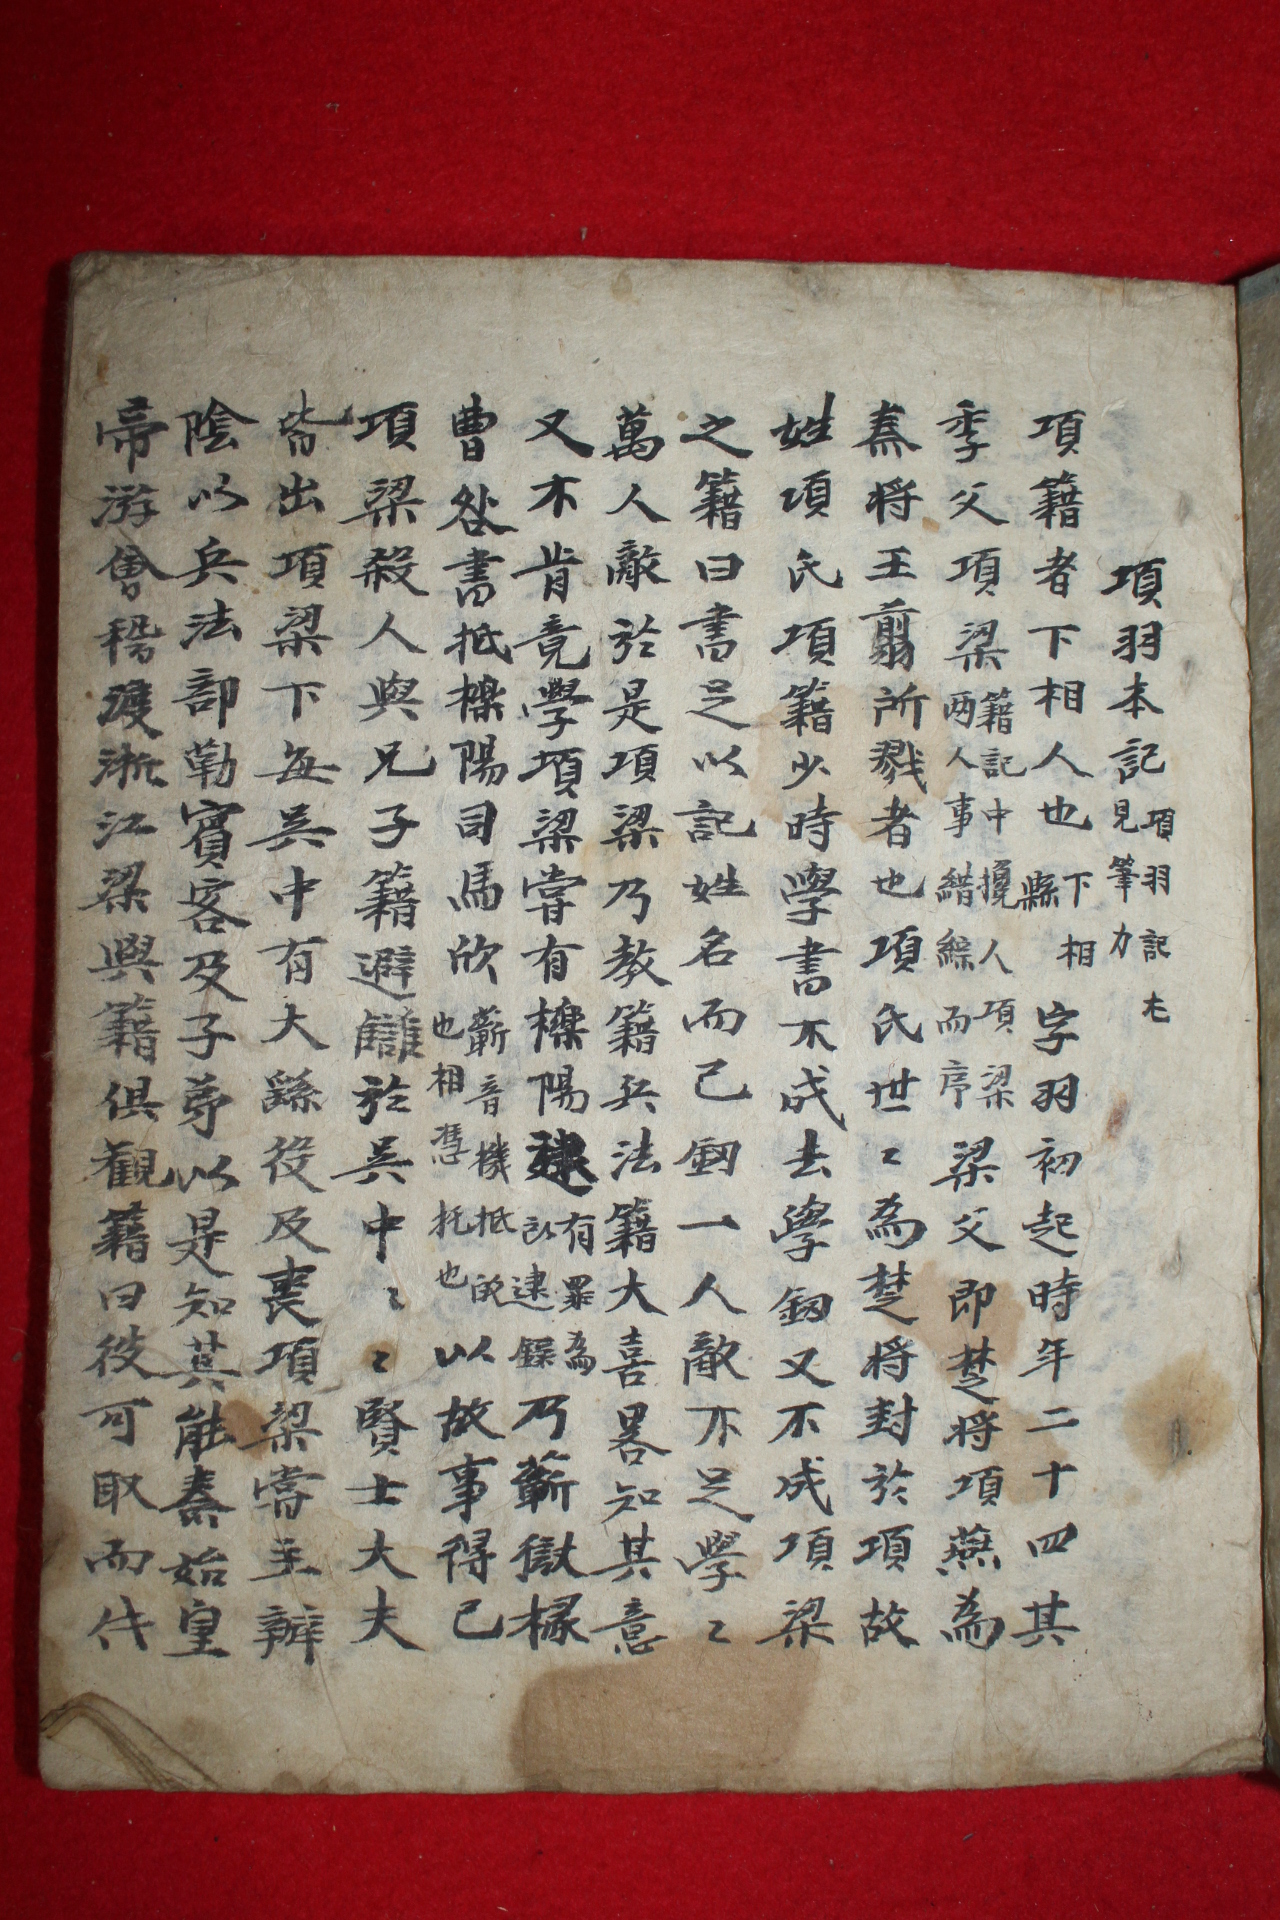 項羽本記 項羽記尤見筆力
項籍者下相人也 下相縣 字羽初起時年二十四其
季父項梁 籍記中攙人項梁兩人事錯綜而序 梁父即楚將項燕為
秦將王翦所戮者也項氏世〻為楚將封於項故
姓項氏項籍少時學書不成去學釰又不成項梁
之籍曰書足以記姓名而已釰一人敵不足學〻
萬人敵於是項梁乃教籍兵法籍大喜畧知其意
又不肯竟學項梁嘗有櫟陽逮 有罪為以逮錄 乃蘄獄掾
曹咎書抵櫟陽司馬欣 蘄音機抵的也相憑托也 以故事得已
項梁殺人與兄子籍避讎於吳中〻〻賢士大夫
皆出項梁下每吳中有大繇役及喪項梁常主辦
陰以兵法部勒賓客及子弟以是知其能秦始皇
帝游會稽渡浙江梁與籍俱觀籍曰彼可取而代